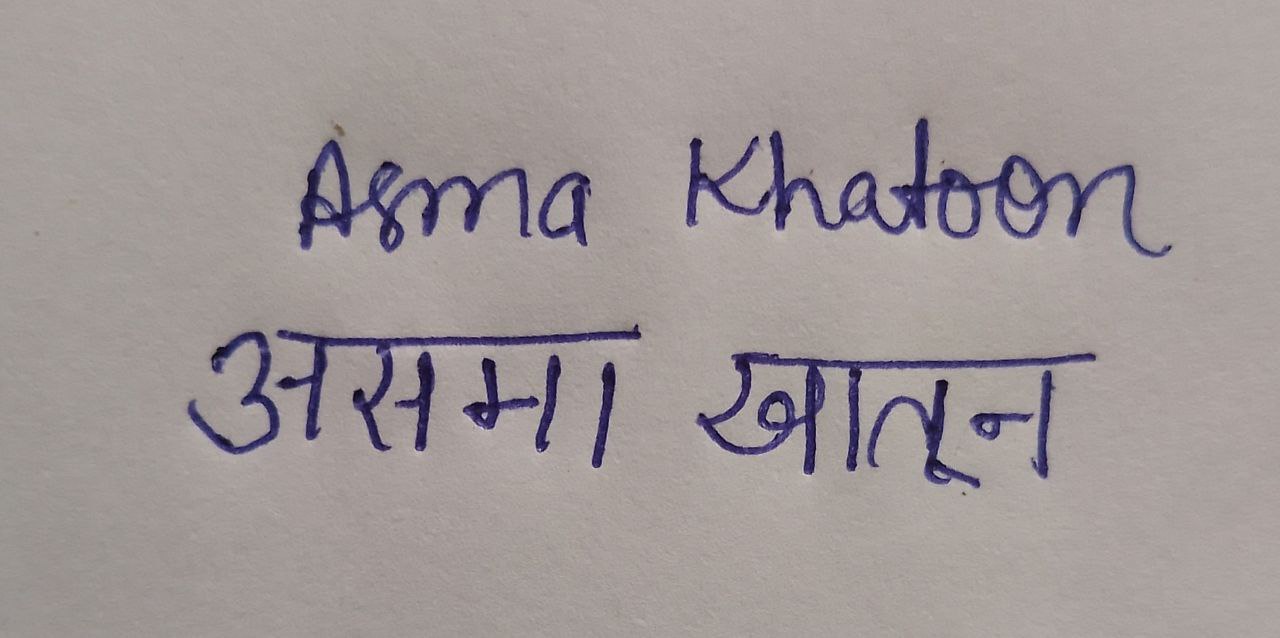 Asma Khatoon
असमा खातून